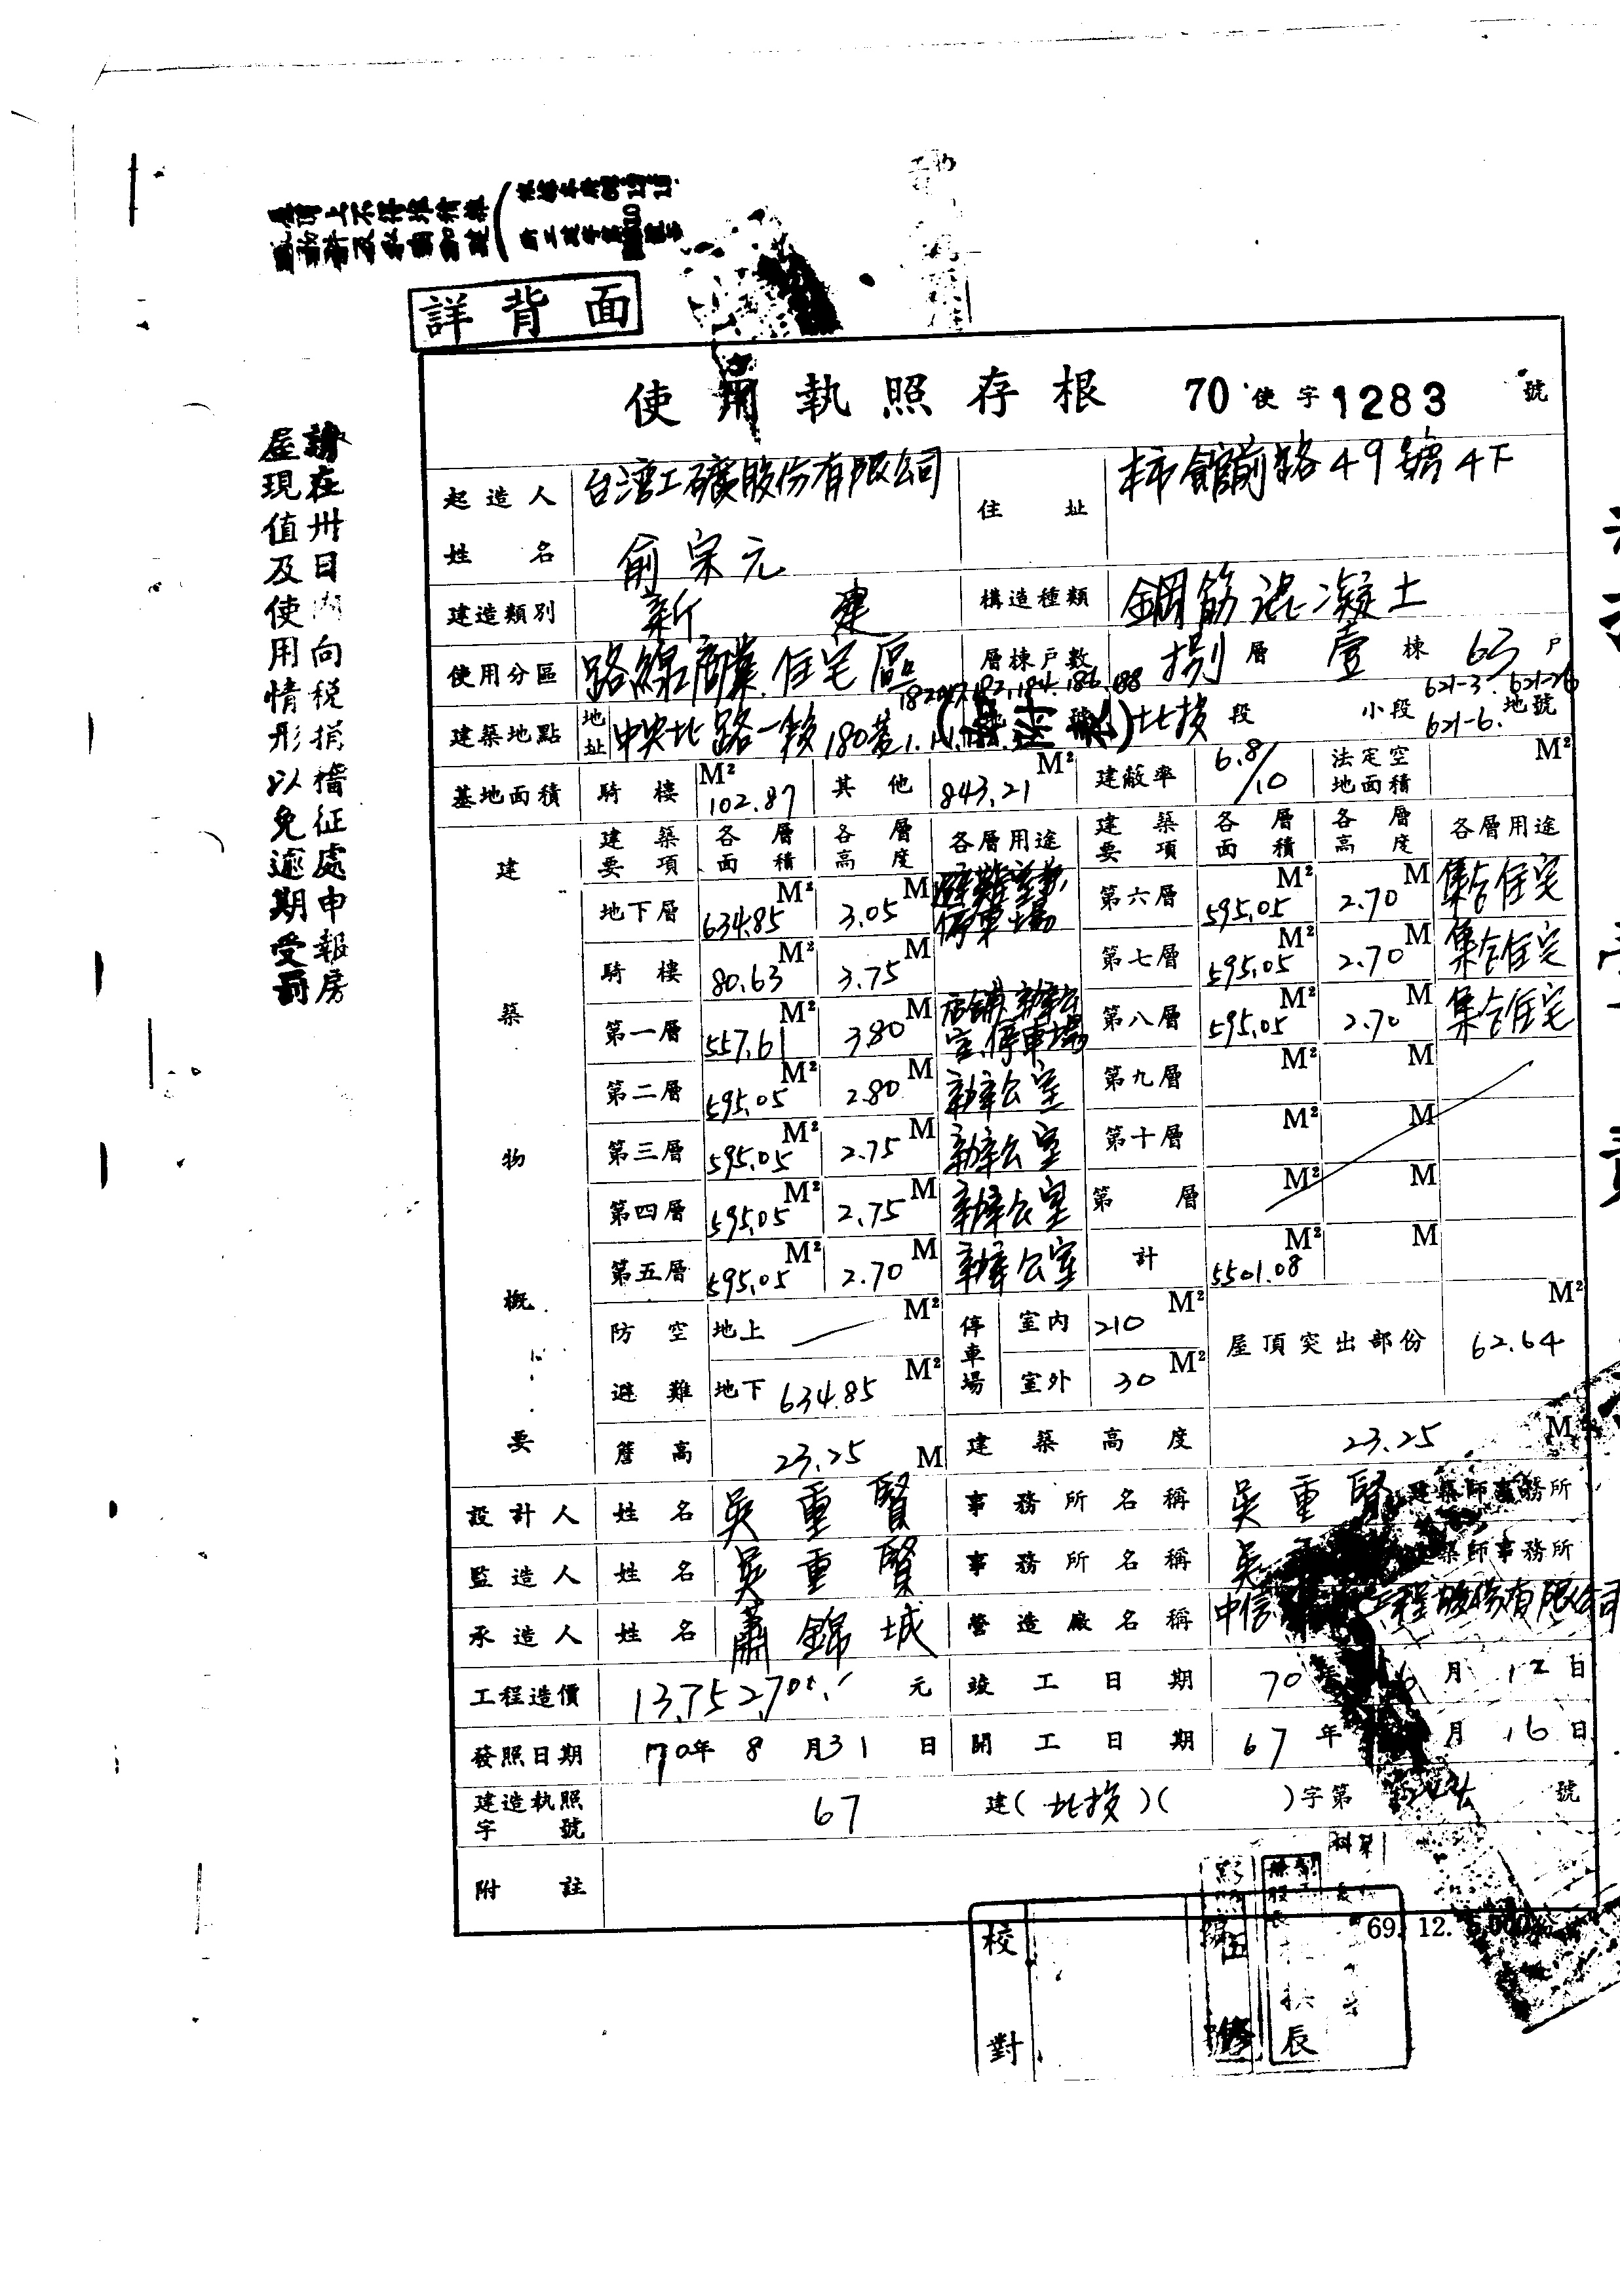 詳背面
使用執照存根 70使字1283號
起造人姓名 台湾工礦股份有限公司 俞宗元 住址 本市館前路49號4下
建造類別 新建 構造種類 鋼筋混凝土
使用分區 路線商業.住宅區 層棟戶數 捌層 壹棟 63戶
建築地點 地址 中央北路一段180巷1. 北投段 小段 621-3. 621-26 621-6. 地號
基地面積 騎樓 102.87 M² 其他 843.21 M² 建蔽率 6.8/10 法定空地面積 M²
建築物概要
建築要項 各層面積 各層高度 各層用途 建築要項 各層面積 各層高度 各層用途
地下層 634.85 M² 3.05 M 避難室兼停車場 第六層 595.05 M² 2.70 M 集合住宅
騎樓 80.63 M² 3.75 M 第七層 595.05 M² 2.70 M 集合住宅
第一層 557.61 M² 3.80 M 店舖.辦公室.停車場 第八層 595.05 M² 2.70 M 集合住宅
第二層 595.05 M² 2.80 M 辦公室 第九層 M² M
第三層 595.05 M² 2.75 M 辦公室 第十層 M² M
第四層 595.05 M² 2.75 M 辦公室 第 層 M² M
第五層 595.05 M² 2.70 M 辦公室 計 5501.08 M² M
防空避難 地上 M² 停車場 室內 210 M² 屋頂突出部份 62.64 M²
地下 634.85 M² 室外 30 M²
簷高 23.25 M 建築高度 23.25 M
設計人 姓名 吳重賢 事務所名稱 吳重賢建築師事務所
監造人 姓名 吳重賢 事務所名稱 吳 建築師事務所
承造人 姓名 蕭錦城 營造廠名稱 中信 工程股份有限公司
工程造價 元 竣工日期 70年6月12日
發照日期 70年8月31日 開工日期 67年 月16日
建造執照字號 67 建(北投)( )字第 號
附註
69. 12. 5,000
校對
請在卅日內向稅捐稽征處申報房
屋現值及使用情形以免逾期受罰